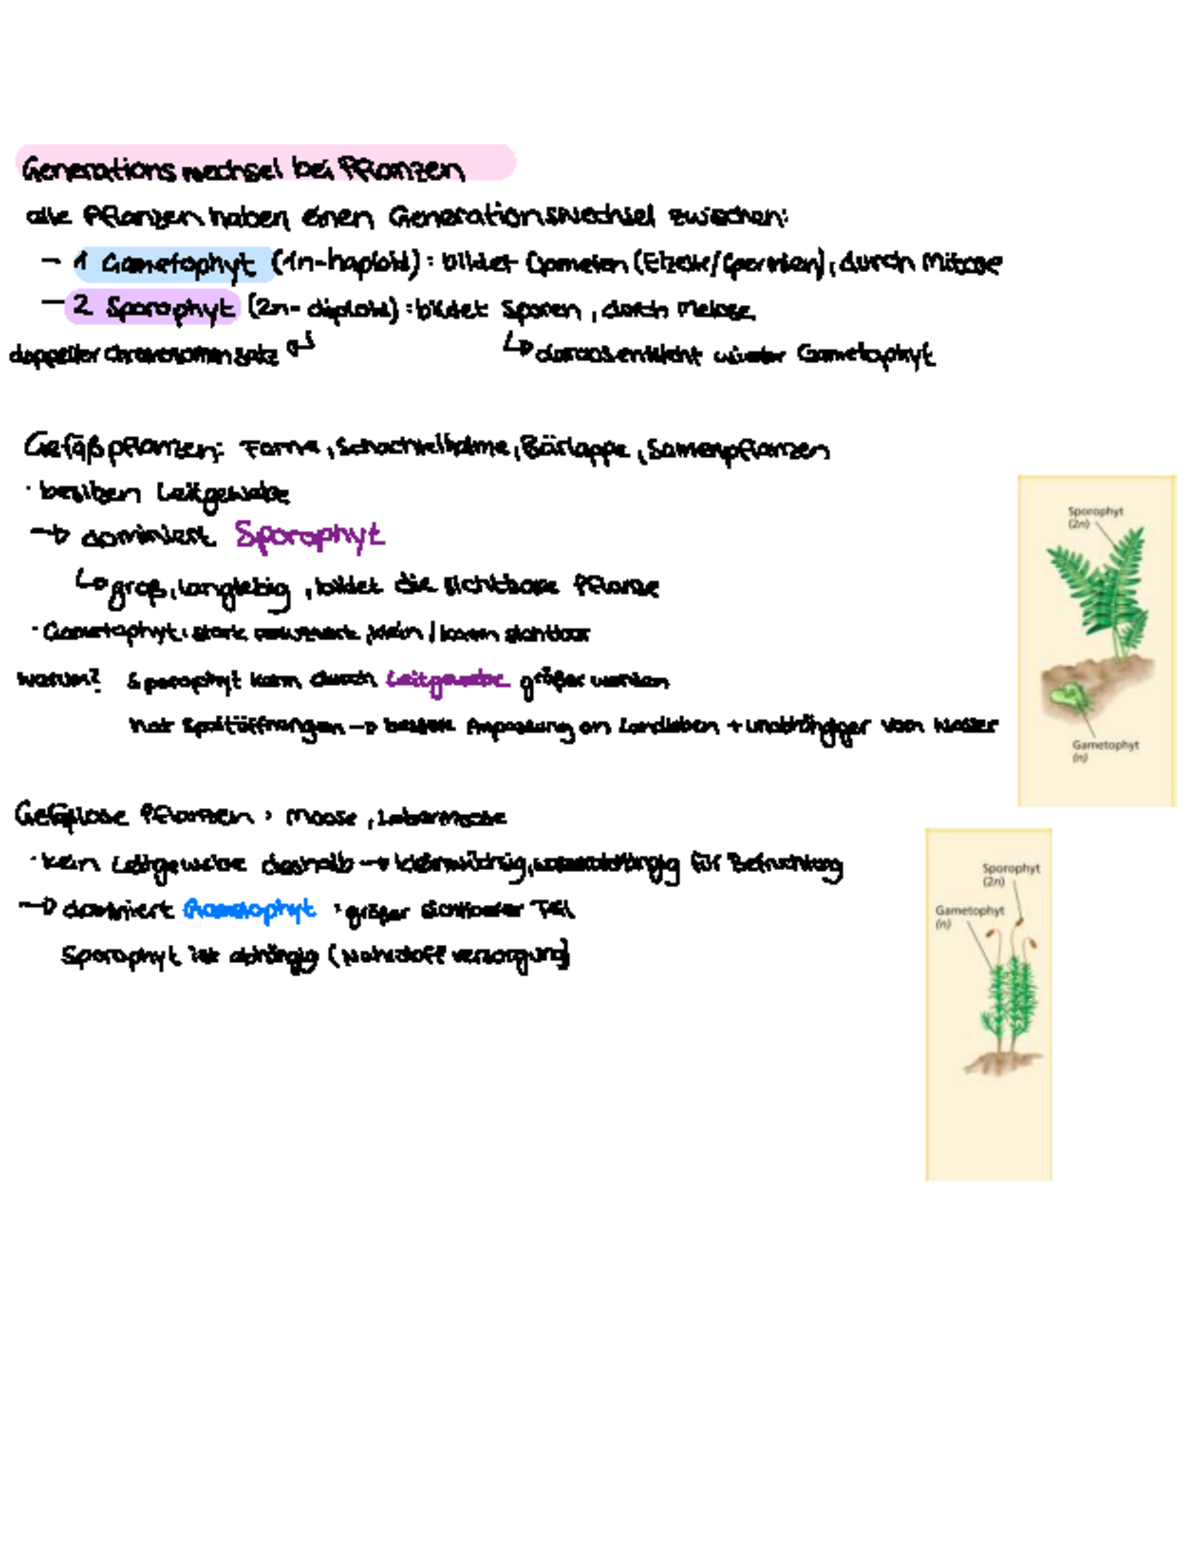 Generationswechsel bei Pflanzen
alle Pflanzen haben einen Generationswechsel zwischen:
- 1 Gametophyt (1n-haploid): bildet Gameten (Eizelle/Spermien), durch Mitose
- 2 Sporophyt (2n-diploid): bildet Sporen, durch Meiose
doppelter Chromosomensatz ↵ ↳ daraus entsteht wieder Gametophyt
Gefäßpflanzen: Farne, Schachtelhalme, Bärlappe, Samenpflanzen
· besitzen Leitgewebe
→ dominiert Sporophyt
↳ groß, langlebig, bildet die sichtbare Pflanze
· Gametophyt: stark klein / kaum sichtbar
warum? Sporophyt kann durch Leitgewebe größer werden
hat Spaltöffnungen → bessere Anpassung an Landleben + unabhängiger vom Wasser
Sporophyt
(2n)
Gametophyt
(n)
Gefäßlose Pflanzen: Moose, Lebermoose
· kein Leitgewebe deshalb → kleinwüchsig, wasserabhängig für Befruchtung
→ dominiert Gametophyt: größer sichtbarer Teil
Sporophyt ist abhängig (Nährstoffversorgung)
Sporophyt
(2n)
Gametophyt
(n)